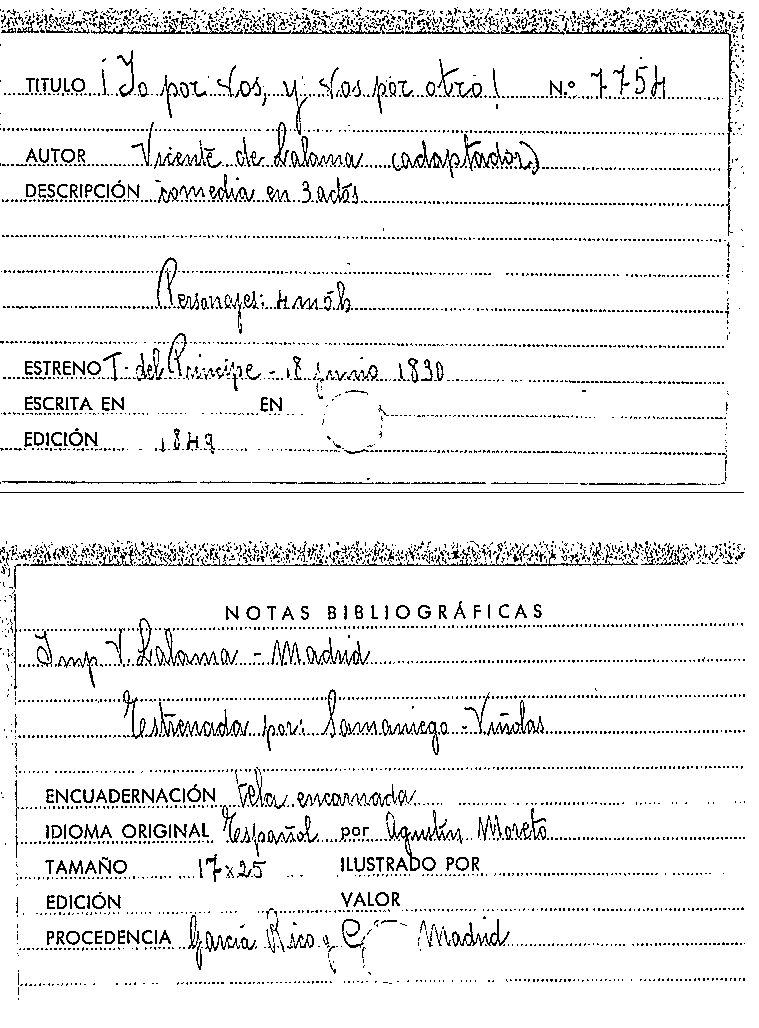 TITULO ¡Yo por vos, y vos por otro! N.º 7754
AUTOR Vicente de Lalama (adaptador)
DESCRIPCIÓN comedia en 3 actos
Personajes: 4 m 5 h
ESTRENO T. del Príncipe - 18 junio 1830
ESCRITA EN EN
EDICIÓN 1849
NOTAS BIBLIOGRÁFICAS
Imp V. Lalama - Madrid
Estrenada por: Samaniego - Viñolas
ENCUADERNACIÓN tela encarnada
IDIOMA ORIGINAL Español por Agustín Moreto
TAMAÑO 17x25 ILUSTRADO POR
EDICIÓN VALOR
PROCEDENCIA García Rico y Cª Madrid